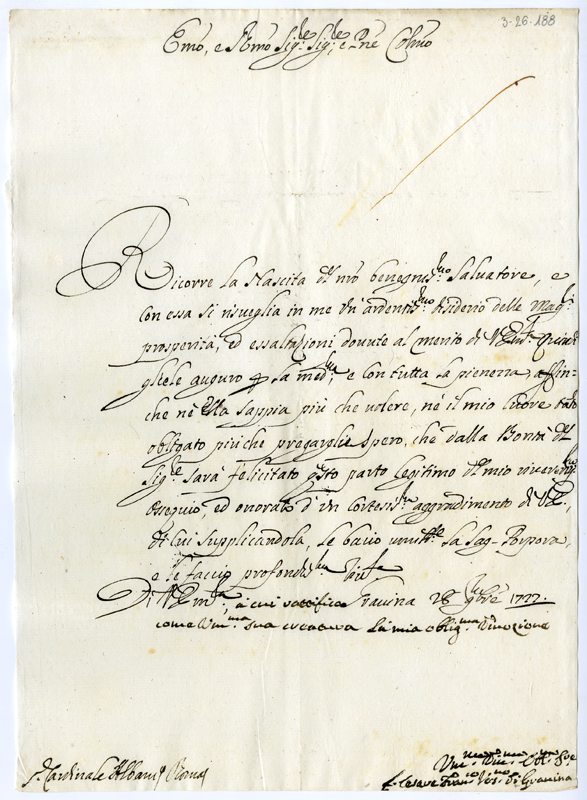 3-26-188
Emo, e Rmo Sigre Sigre, e Pne Colmo
Ricorre la Nascita del nro benignissmo Salvatore, e
con essa si risveglia in me un ardentissmo desiderio delle magi
prosperità, ed essaltazioni dovute al merito di V Emza. Quindi
gliele auguro p la medma, e con tutta la pienezza, affin-
che nè Ella sappia più che volere, nè il mio cuore tanto
obligato più che pregargli. Spero, che dalla Bontà del
Sigre sarà felicitato qsto parto legitimo del mio riverentmo
ossequio, ed onorato d'un cortesissmo aggradimento di VE.,
di cui supplicandola, le bacio umilmte la Sag- Porpora,
e le faccio profondisma rivza
Di V Emza, a cui Gravina 28 9bre 1727.
come sua la mia obligma divozione
S. Cardinale Albani Roma
Umo Divmo Obmo Sre
f. Cesare Franco Vesvo di Gravina